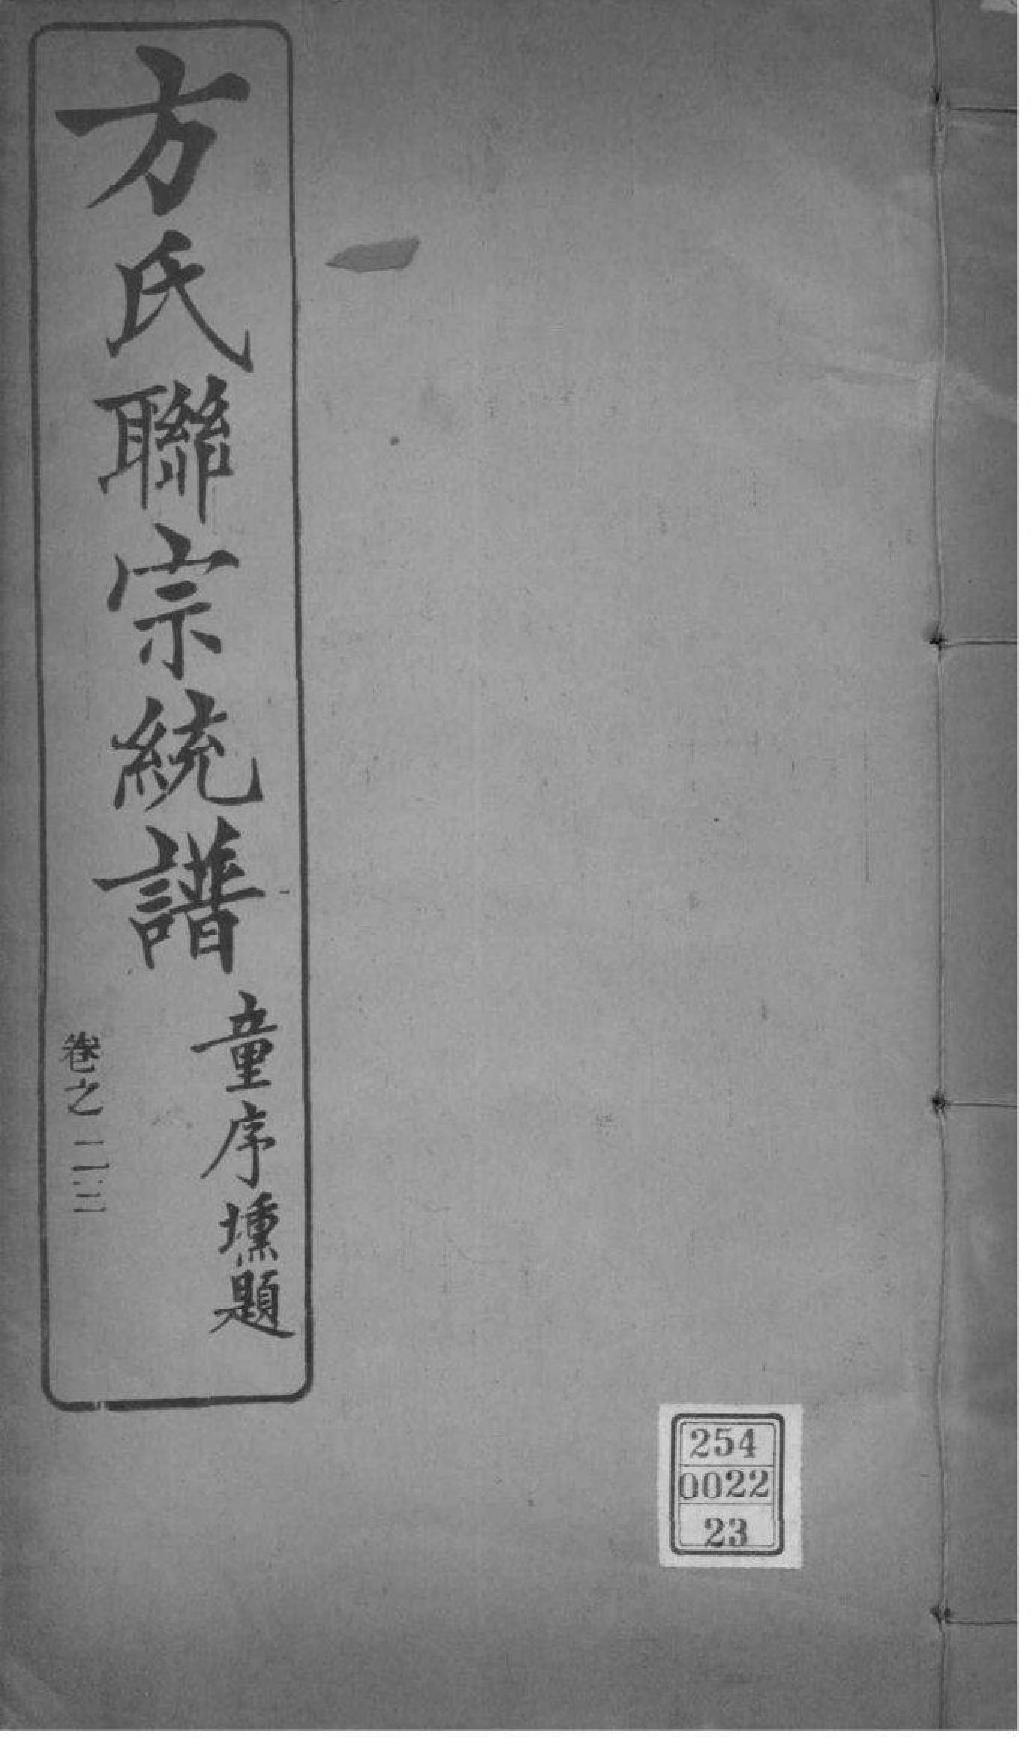 方氏聯宗統譜
童序壎題
卷之二三
254
0022
23